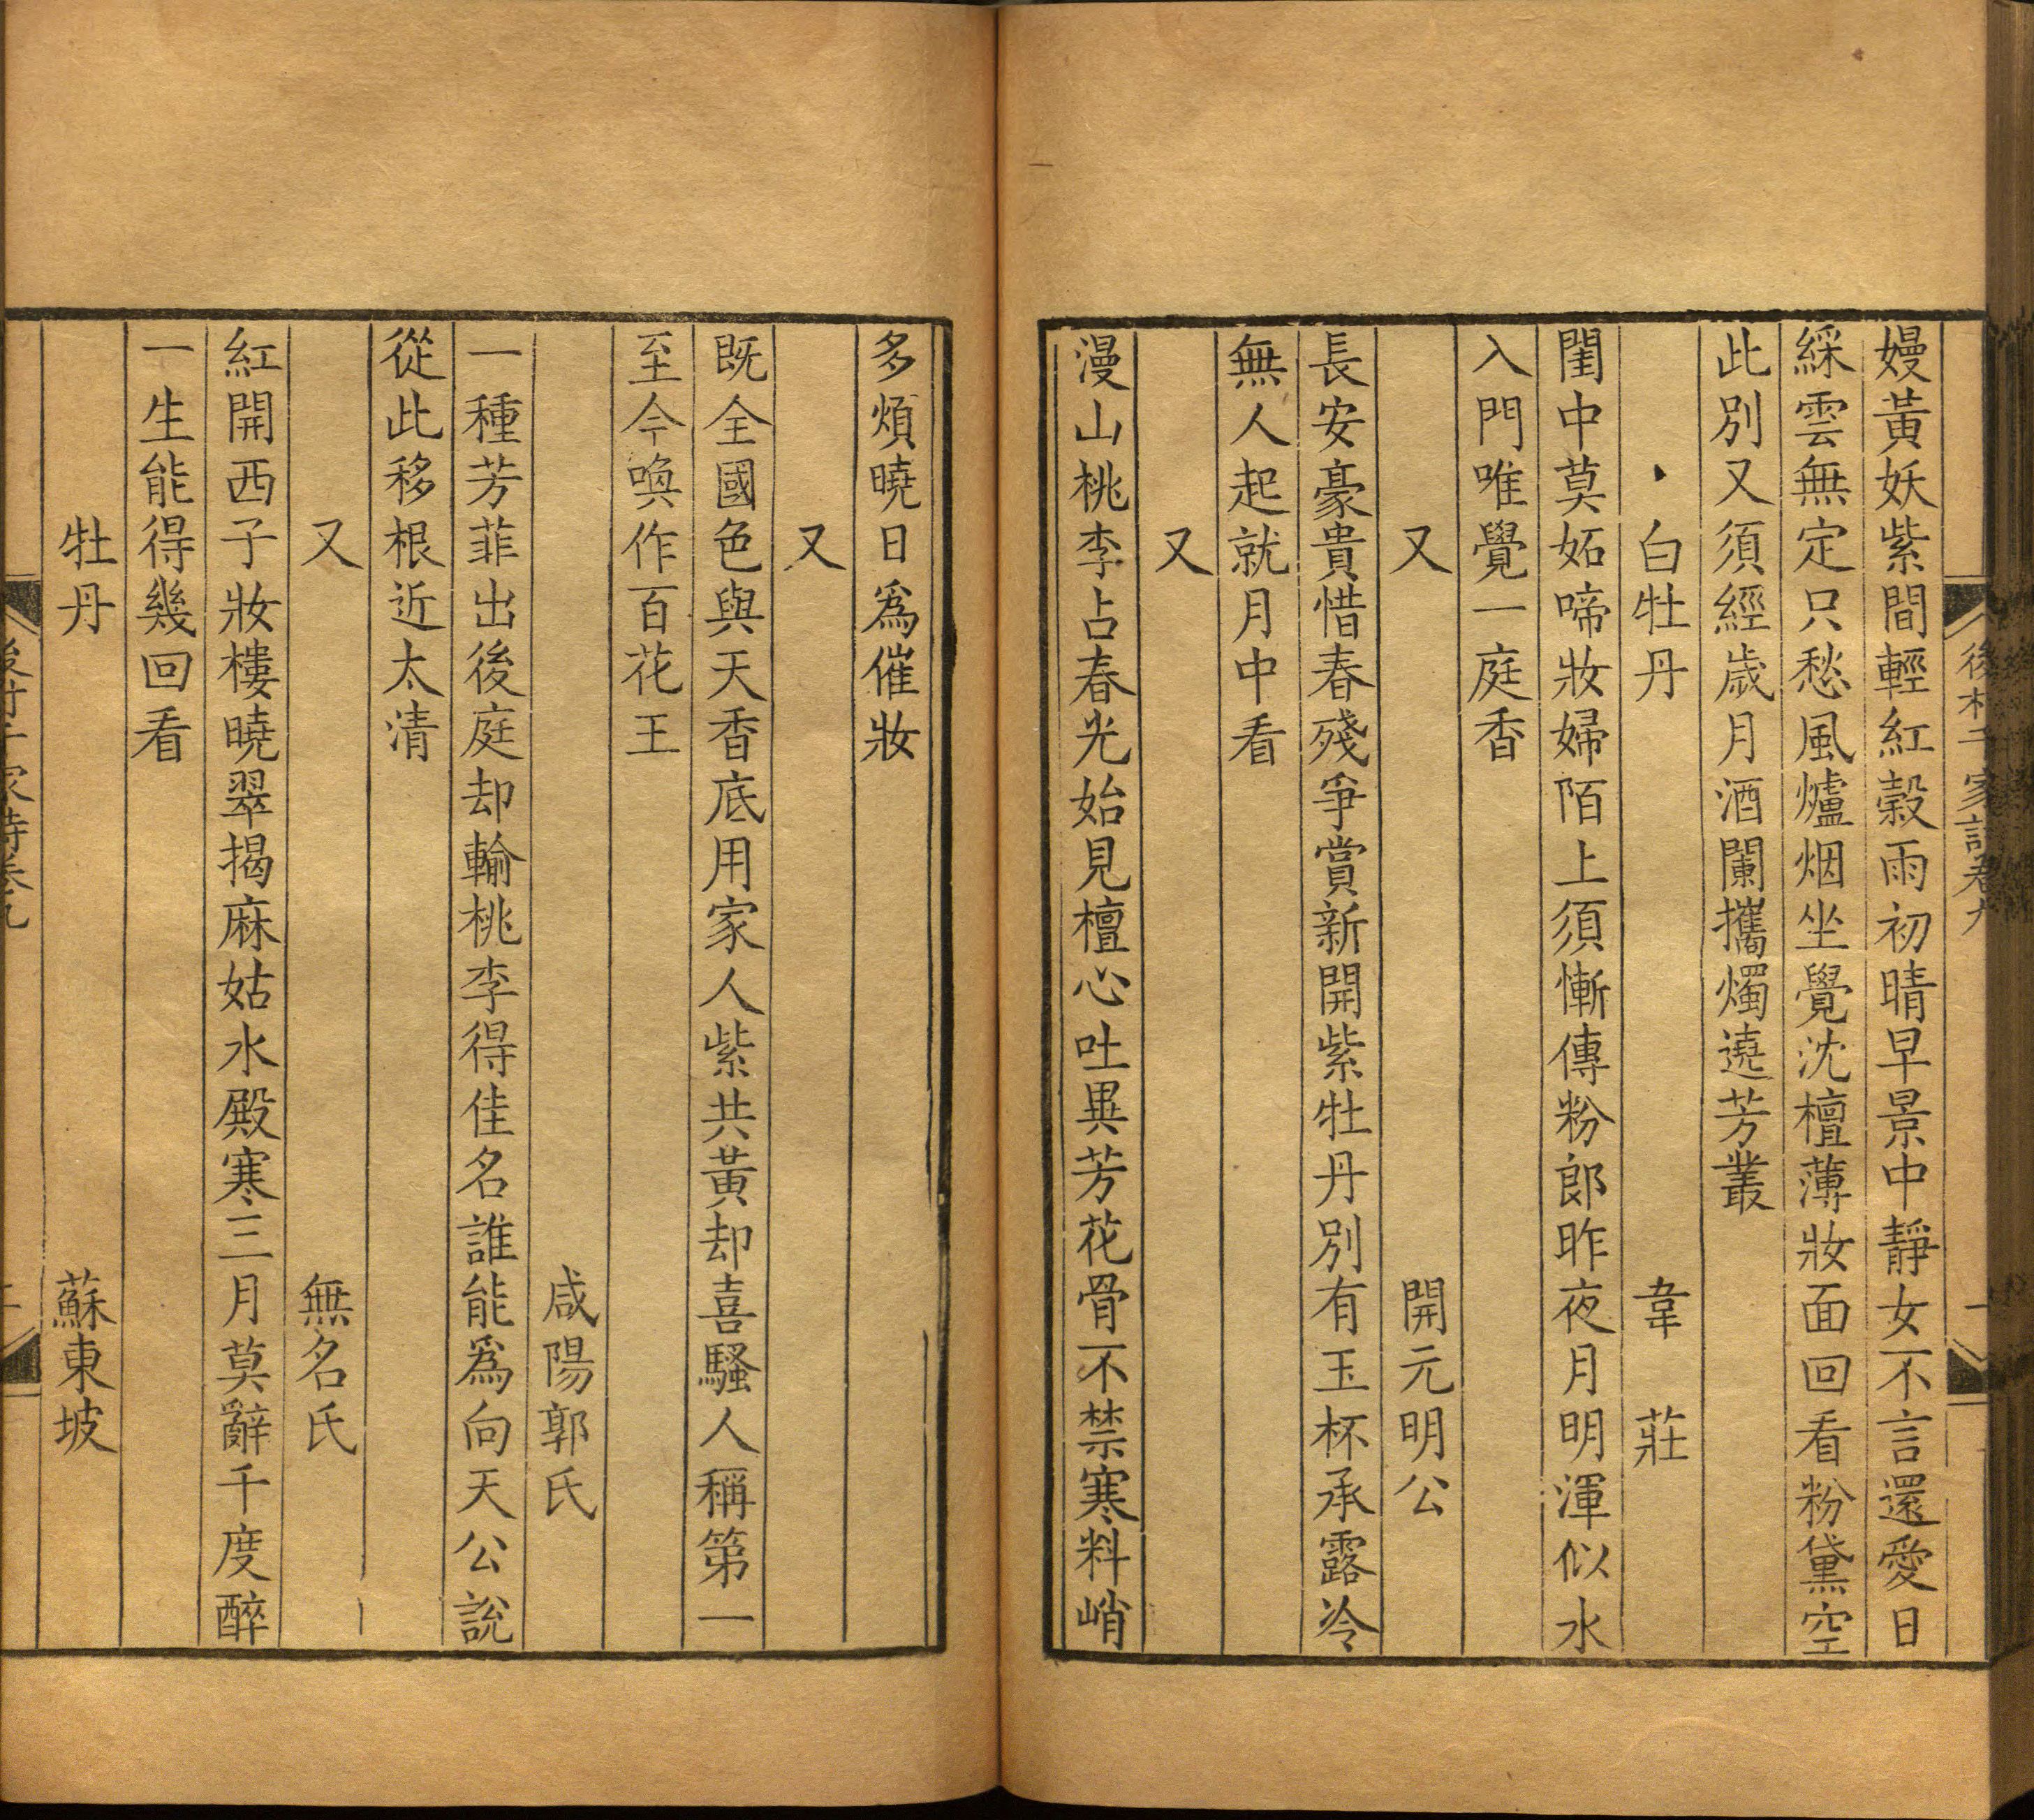 嫚黃妖紫間輕紅穀雨初晴早景中靜女不言還愛日
綵雲無定只愁風爐烟坐覺沈檀薄妝面回看粉黛空
此別又須經歲月酒闌攜燭遶芳叢
白牡丹 韋 莊
閨中莫妬啼妝婦陌上須慚傳粉郎昨夜月明渾似水
入門唯覺一庭香
又 開元明公
長安豪貴惜春殘爭賞新開紫牡丹別有玉杯承露冷
無人起就月中看
又
漫山桃李占春光始見檀心吐異芳花骨不禁寒料峭
多煩曉日爲催妝
又
既全國色與天香底用家人紫共黃却喜騷人稱第一
至今喚作百花王
咸陽郭氏
一種芳菲出後庭却輸桃李得佳名誰能爲向天公說
從此移根近太清
又 無名氏
紅開西子妝樓曉翠揭麻姑水殿寒三月莫辭千度醉
一生能得幾回看
牡丹 蘇東坡